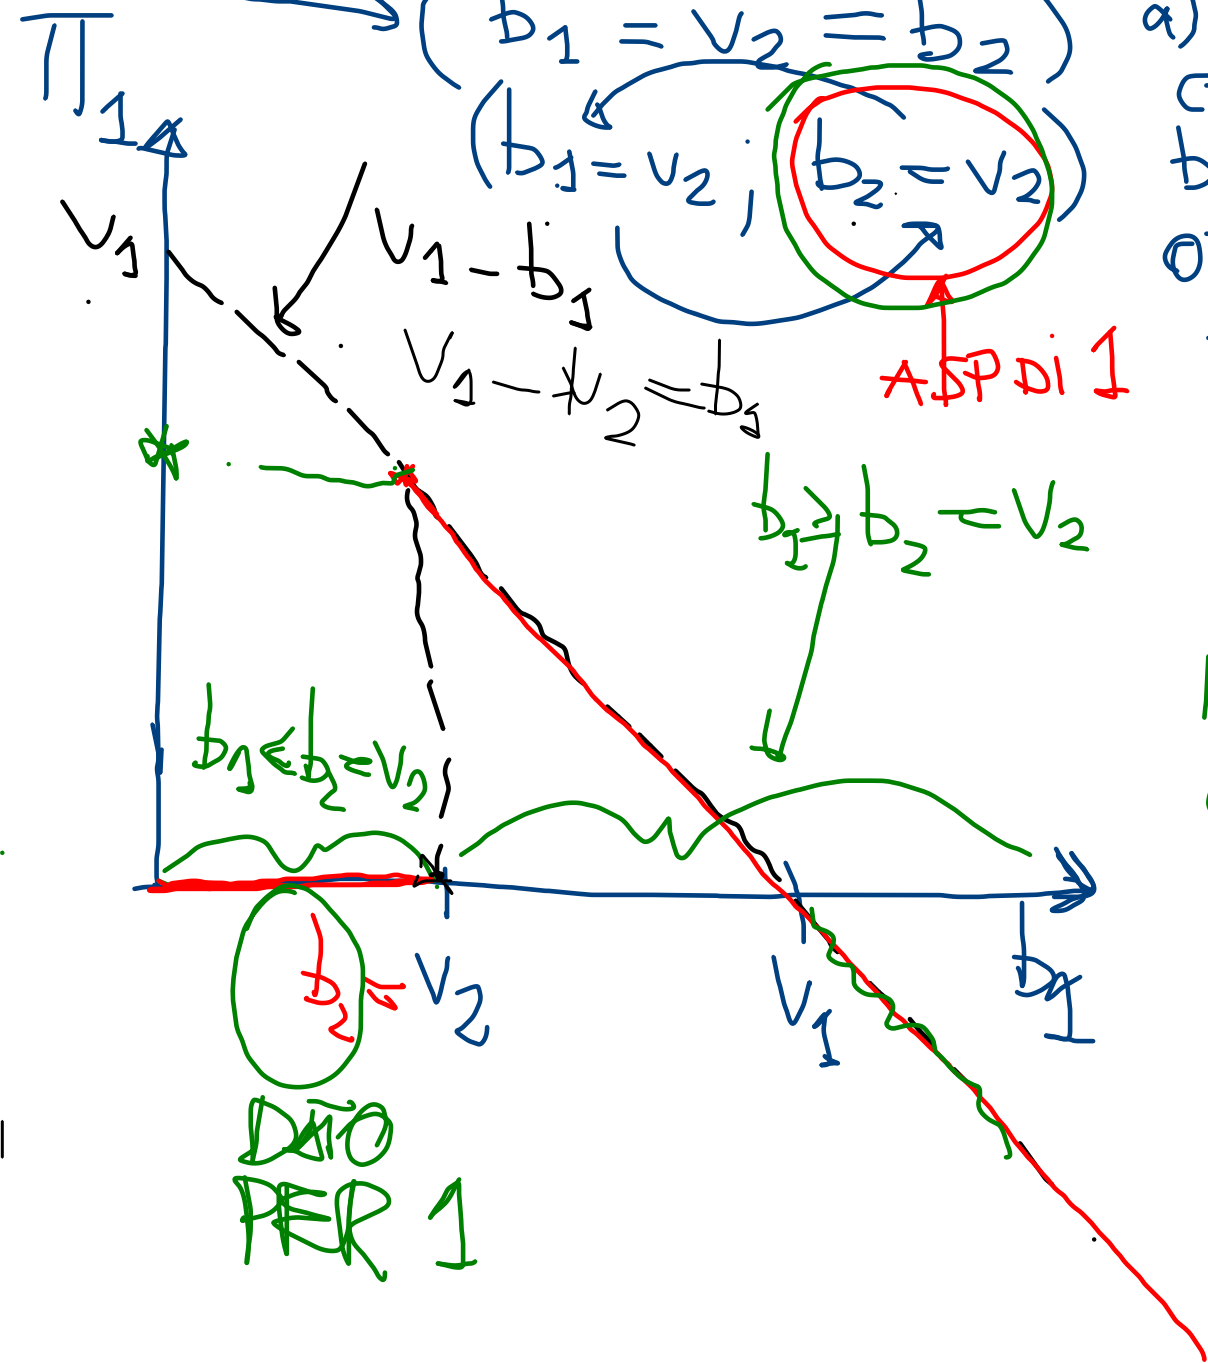 Π1
(b1 = v2 = b2)
a)
(b1 = v2 ; b2 = v2)
b
V1
V1 - b1
V1 - V2 = b1
ASP DI 1
b1 ≥ b2 = V2
b1 < b2 = V2
b2 =
V2
V1
b1
DATO
PER 1